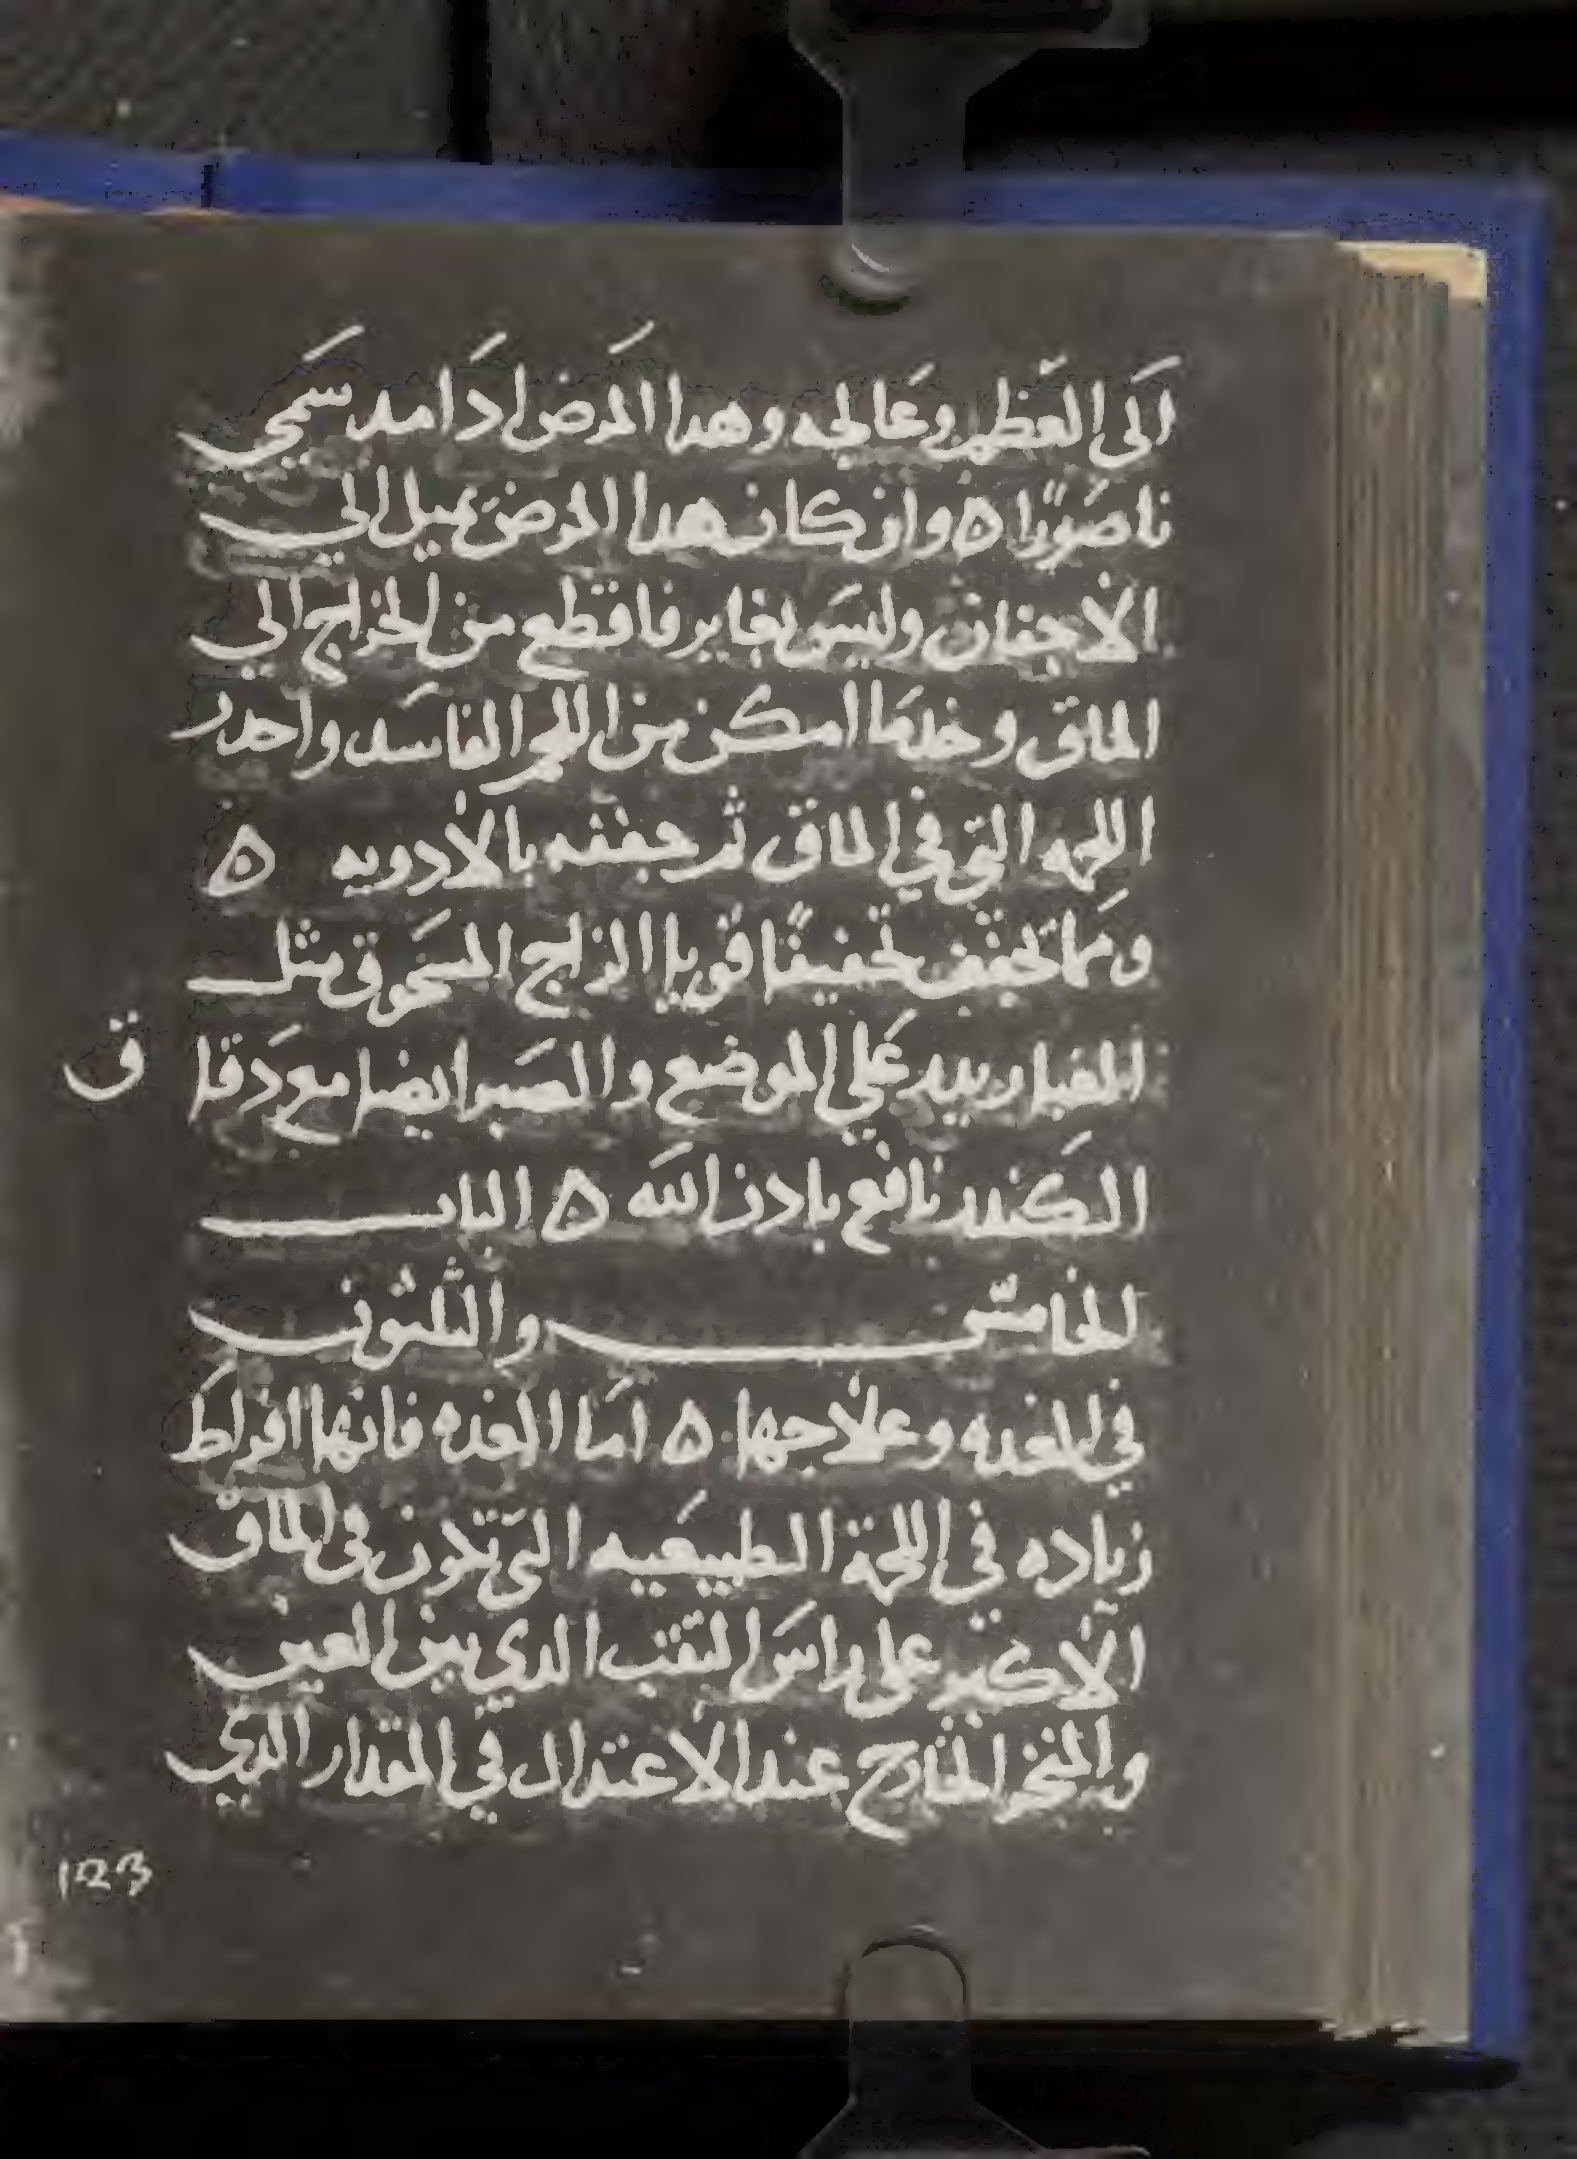 الى العظم وعالجه وهدا المرض ادا مد سمي
ناصورًا ه وان كان هدا المرض يميل الي
الاجفان وليس بغاير فاقطع من الخراج الي
الماق وخد ما امكن من اللحم الفاسد واحدر
اللحمه التي في الماق ثم جففه بالادويه ه
ومما تجفف تجفيفًا قويا الزاج المسحوق مثل
الغبار يديه علي الموضع والصبر ايضا مع دقا ق
الكندر نافع بادن الله ه الباب
الخامس والثلثون
في الغده وعلاجها ه اما الغده فانها افراط
زياده في اللحمة الطبيعيه التي تكون في الماق
الاكبر على راس الثقب الدي بين العين
والمنخر الخارج عند الاعتدال في المقدار الدي
123